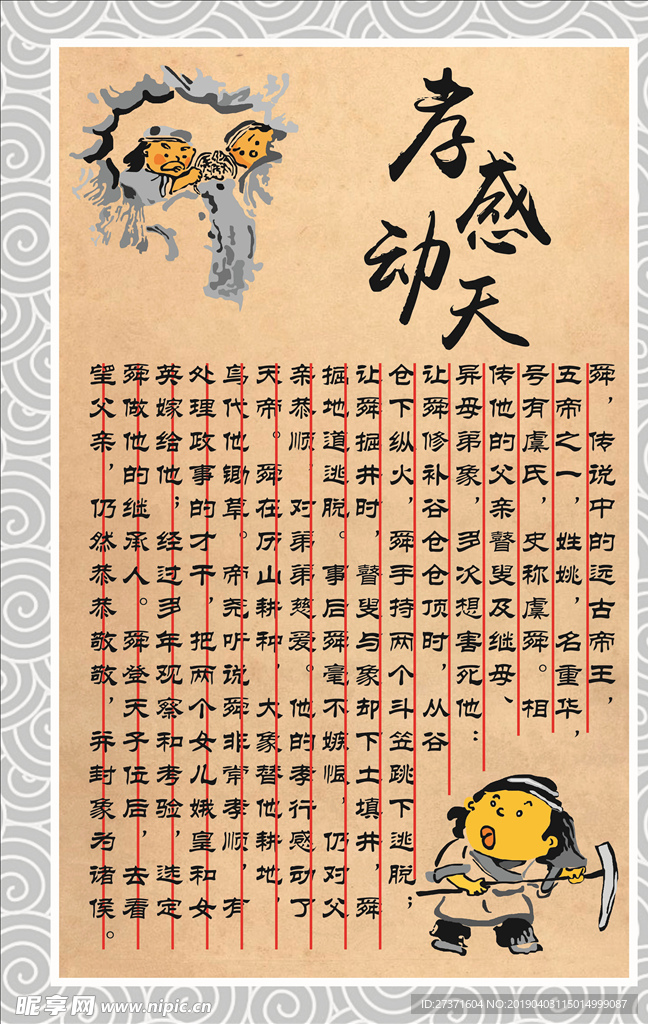 孝感动天
舜，传说中的远古帝王，
五帝之一，姓姚，名重华，
号有虞氏，史称虞舜。相
传他的父亲瞽叟及继母、
异母弟象，多次想害死他：
让舜修补谷仓仓顶时，从谷
仓下纵火，舜手持两个斗笠跳下逃脱；
让舜掘井时，瞽叟与象却下土填井，舜
掘地道逃脱。事后舜毫不嫉恨，仍对父
亲恭顺，对弟弟慈爱。他的孝行感动了
天帝。舜在厉山耕种，大象替他耕地，
鸟代他锄草。帝尧听说舜非常孝顺，有
处理政事的才干，把两个女儿娥皇和女
英嫁给他；经过多年观察和考验，选定
舜做他的继承人。舜登天子位后，去看
望父亲，仍然恭恭敬敬，并封象为诸侯。
昵享网 www.nipic.cn
ID:27371604 NO:20190403115014999087